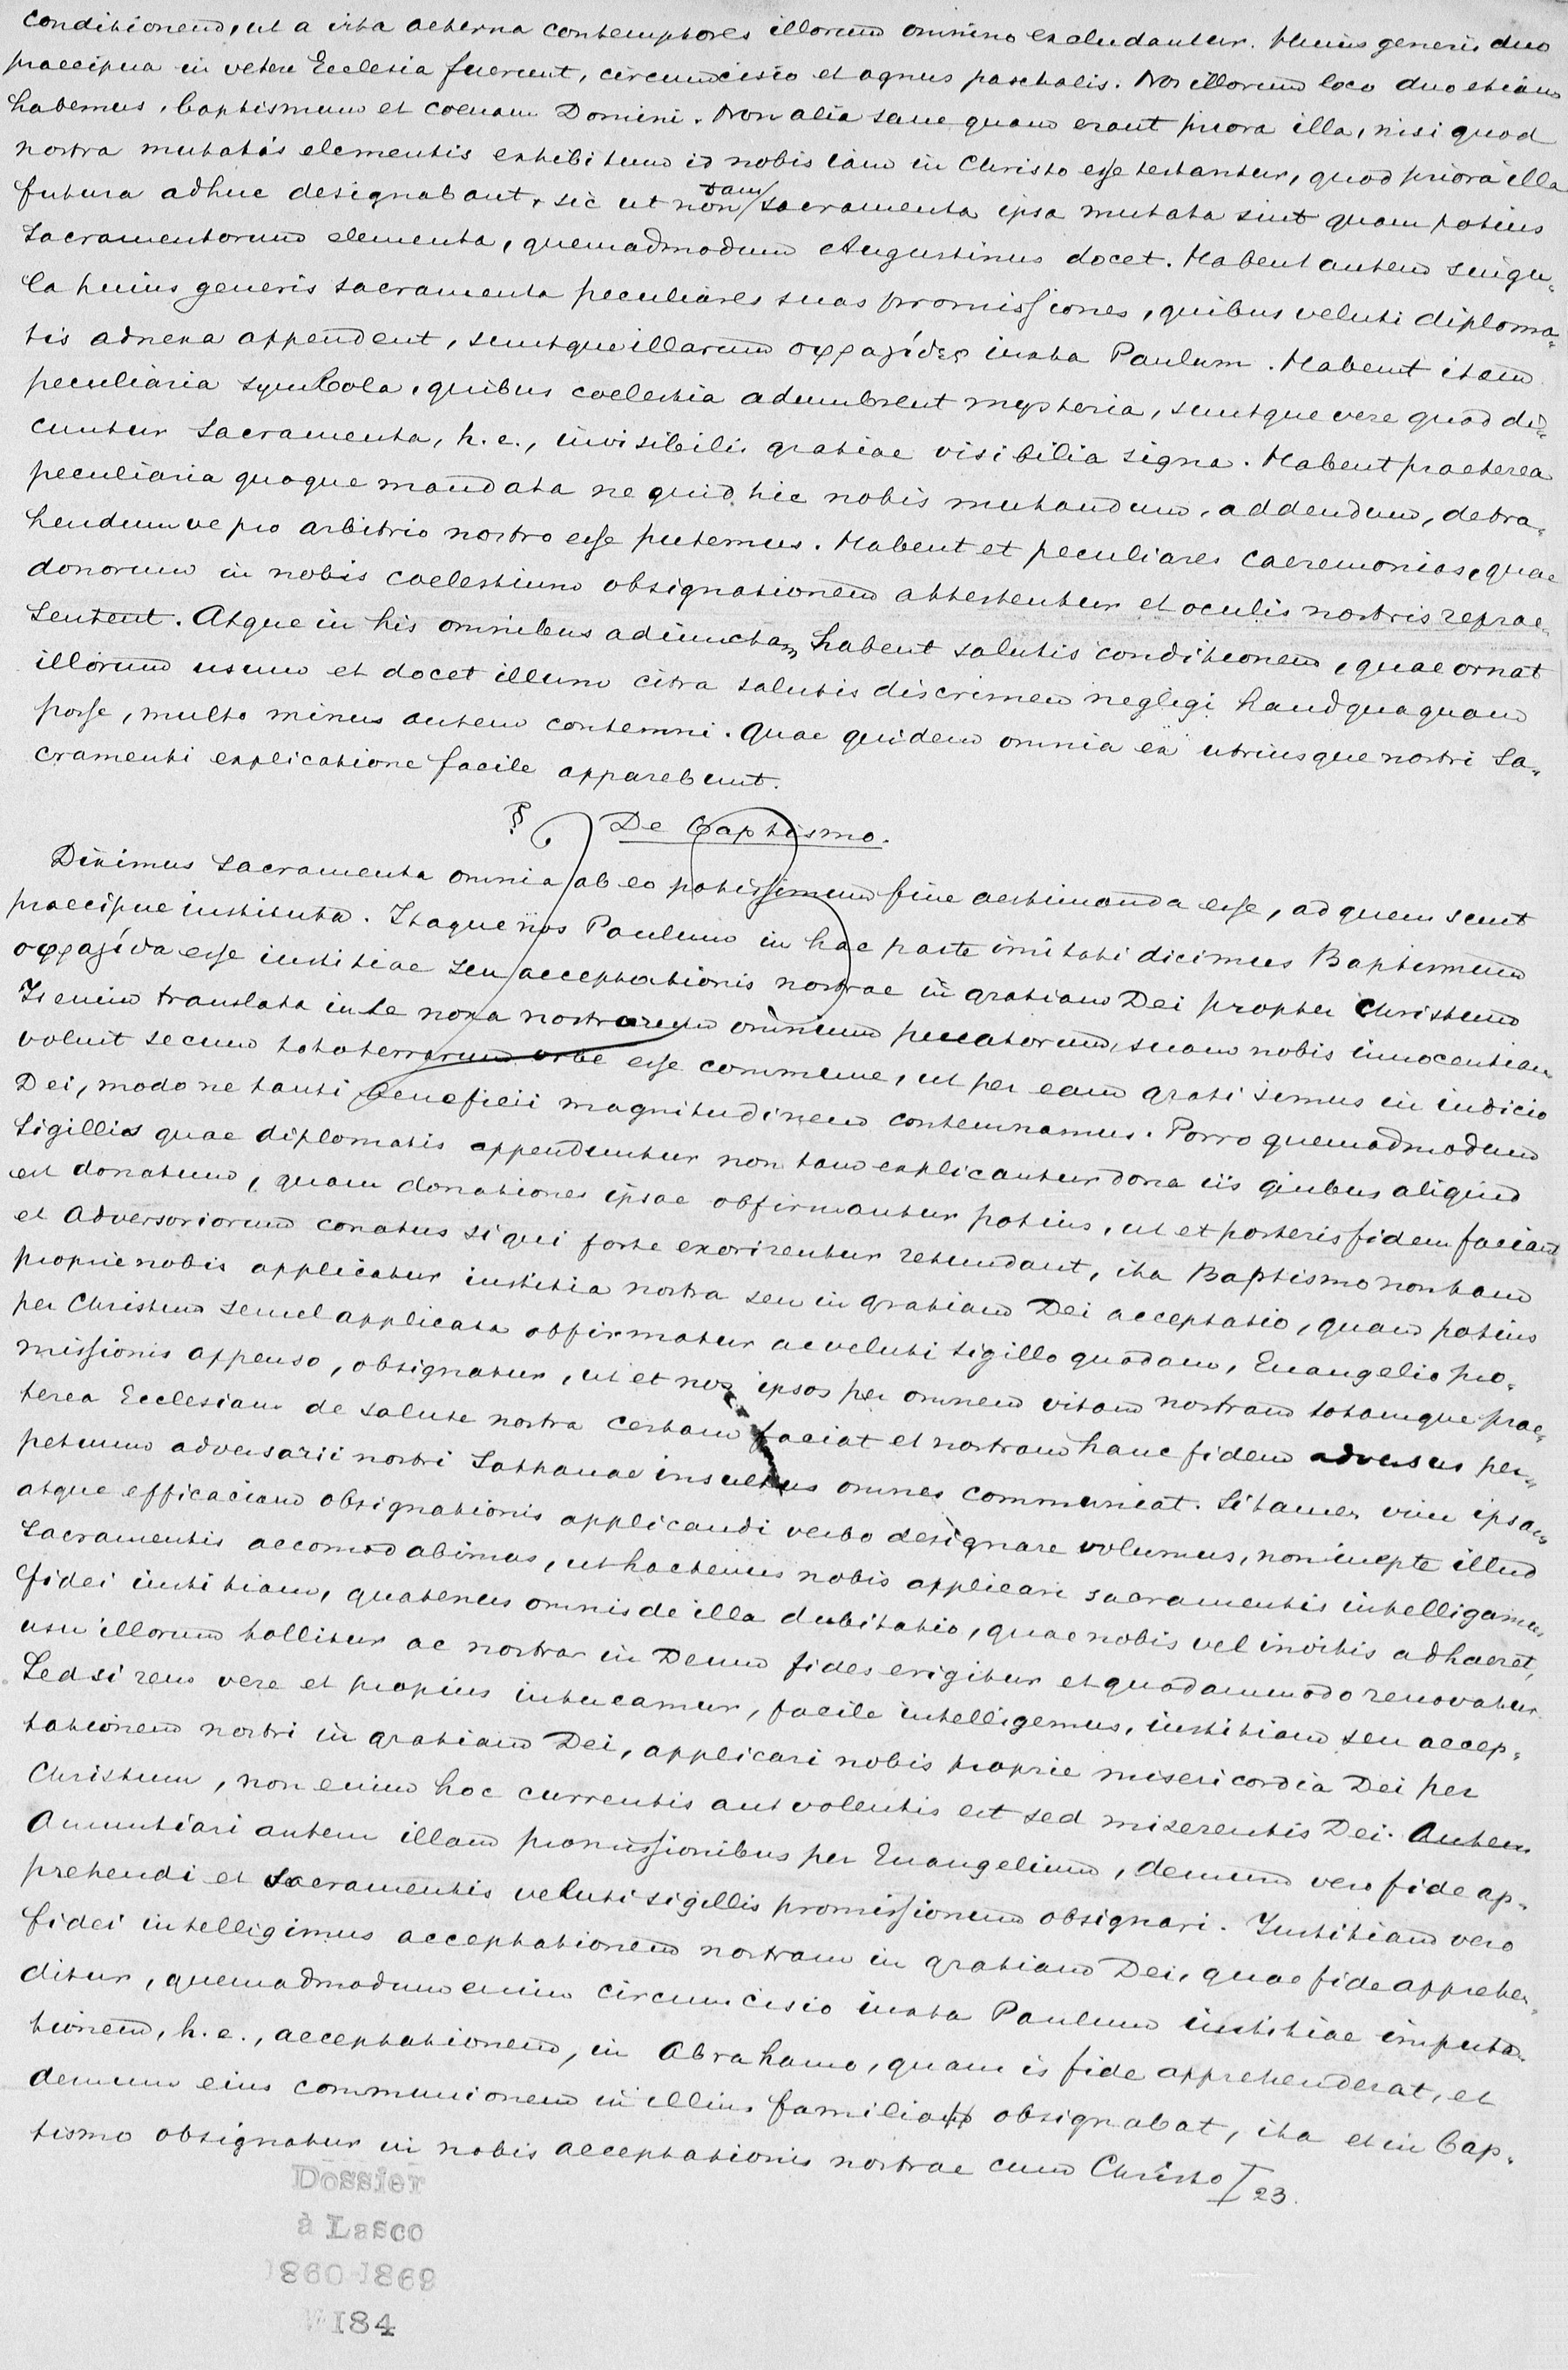 conditionem, ut a vita aeterna contemptores illorum omnino excludantur. Huius generis duo
praecipua in vetere Ecclesia fuerunt, circumcisio et agnus paschalis. Nos illorum loco duo etiam
habemus, baptismum et coenam Domini. Non alia sane quam erant priora illa, nisi quod
nostra mutatis elementis exhibitum id nobis iam in Christo esse testantur, quod priora illa
futura adhuc designabant, sic ut non tam sacramenta ipsa mutata sint quam potius
Sacramentorum elementa, quemadmodum Augustinus docet. Habent autem singu-
la huius generis sacramenta peculiares suas promissiones, quibus veluti diploma-
tis adnexa appendent, suntque illarum σφραγίδες iuxta Paulum. Habent item
peculiaria symbola, quibus coelestia adumbrent mysteria, suntque vere quod di-
cuntur Sacramenta, h. e., invisibilis gratiae visibilia signa. Habent praeterea
peculiaria quoque mandata ne quid hic nobis mutandum, addendum, detra-
hendumve pro arbitrio nostro esse putemus. Habent et peculiares caeremonias, quae
donorum in nobis coelestium obsignationem attestentur et oculis nostris reprae-
sentent. Atque in his omnibus adiunctam habent salutis conditionem, quae ornat
illorum usum et docet illum citra salutis discrimen neglegi haudquaquam
posse, multo minus autem contemni. Quae quidem omnia ex utriusque nostri Sa-
cramenti explicatione facile apparebunt.
§ De Baptismo.
Diximus Sacramenta omnia ab eo potissimum fine aestimanda esse, ad quem sunt
praecipue instituta. Itaque nos Paulum in hac parte imitati dicimus Baptismum
σφραγίδα esse iustitiae seu acceptationis nostrae in gratiam Dei propter Christum
Is enim translata in se noxa nostrarum omnium peccatorum, suam nobis innocentiam
voluit secum toto terrarum orbe esse commune, ut per eam grati simus in iudicio
Dei, modo ne tanti beneficii magnitudinem contemnamus. Porro quemadmodum
Sigillis quae diplomatis appenduntur non tam explicantur dona iis quibus aliquid
est donatum, quam donationes ipsae obfirmantur potius, ut et posteris fidem faciant
et Adversariorum conatus si qui forte exorirentur retundant, ita Baptismo non tam
proprie nobis applicatur iustitia nostra seu in gratiam Dei acceptatio, quam potius
per Christum semel applicata obfirmatur ac veluti sigillo quodam, Euangelio pro-
missionis appenso, obsignatur, ut et nos ipsos per omnem vitam nostram totamque prae-
terea Ecclesiam de salute nostra certam faciat et nostram hanc fidem adversus per-
petuum adversarii nostri Sathanae insultus omnes communiat. Si tamen vim ipsam
atque efficaciam obsignationis applicandi verbo designare volumus, non inepte illud
Sacramentis accomodabimus, ut hactenus nobis applicari sacramentis intelligamus
fidei iustitiam, quatenus omnis de illa dubitatio, quae nobis vel invitis adhaeret,
usu illorum tollitur ac nostra in Deum fides erigitur et quodammodo renovatur.
Sed si rem vere et propius intueamur, facile intelligemus, iustitiam seu accep-
tationem nostri in gratiam Dei, applicari nobis proprie misericordia Dei per
Christum, non enim hoc currentis aut volentis est sed miserentis Dei. Autem
Annuntiari autem illam promissionibus per Euangelium, demum vero fide ap-
prehendi et Sacramentis veluti sigillis promissionum obsignari. Iustitiam vero
fidei intelligimus acceptationem nostram in gratiam Dei, quae fide apprehen-
ditur, quemadmodum enim circumcisio iuxta Paulum iustitiae imputa-
tionem, h. e., acceptationem, in Abrahamo, quam is fide apprehenderat, et
demum eius communionem in illius familia obsignabat, ita et in bap-
tismo obsignatur in nobis acceptationis nostrae cum Christo I 23.
Dossier
à Lasco
1860-1869
184